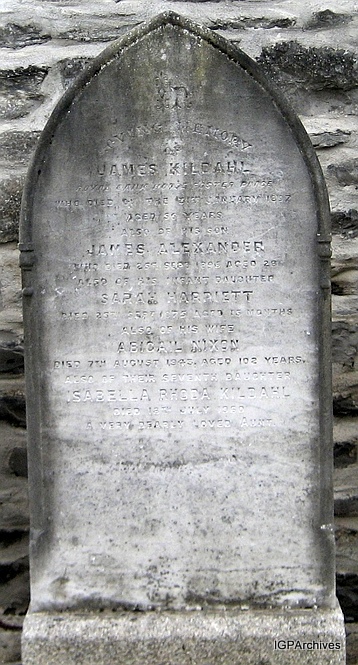 LOVING MEMORY
OF
JAMES KILDAHL
WHO DIED ON THE JANUARY 1897
AGED 56 YEARS
ALSO OF HIS SON
JAMES ALEXANDER
WHO DIED 25TH SEPT 1898 AGED 28
ALSO OF HIS INFANT DAUGHTER
SARAH HARRIETT
DIED 25TH SEPT AGED 15 MONTHS
ALSO OF HIS WIFE
ABIGAIL NIXON
DIED 7TH AUGUST 1943. AGED 102 YEARS.
ALSO OF THEIR SEVENTH DAUGHTER
ISABELLA RHODA KILDAHL
DIED JULY
A VERY DEARLY LOVED AUNT
IGPArchives